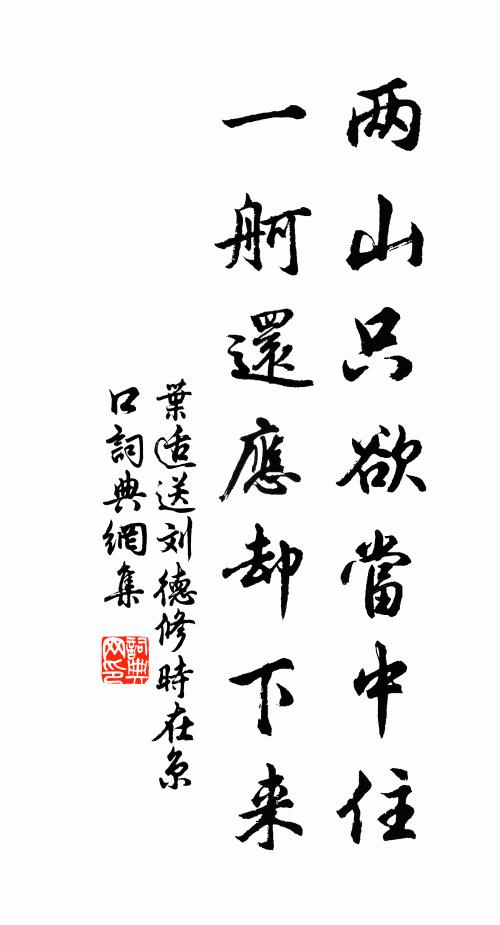 两山只欲當中住
一舸還應却下来
葉适送刘德修時在京
口詞典網集
詞典
网印